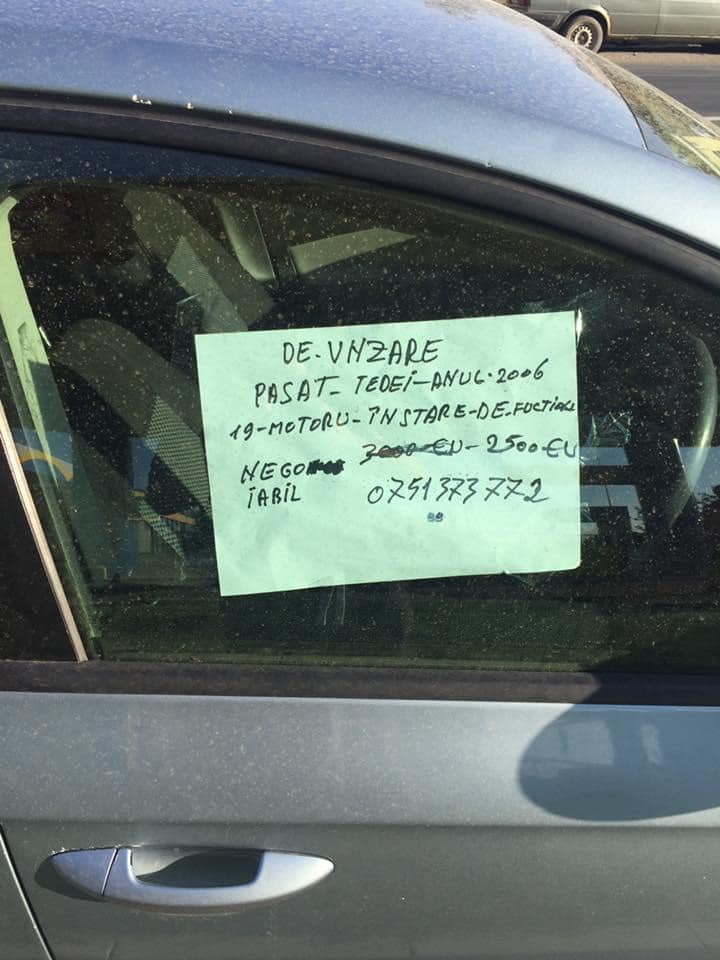 DE-VNZARE
PASAT-TEDEI-ANUL-2006
19-MOTORU-ÎNSTARE-DE-FUCTIONE
3000-EU-2500-EU
NEGO
IABIL 0751373772